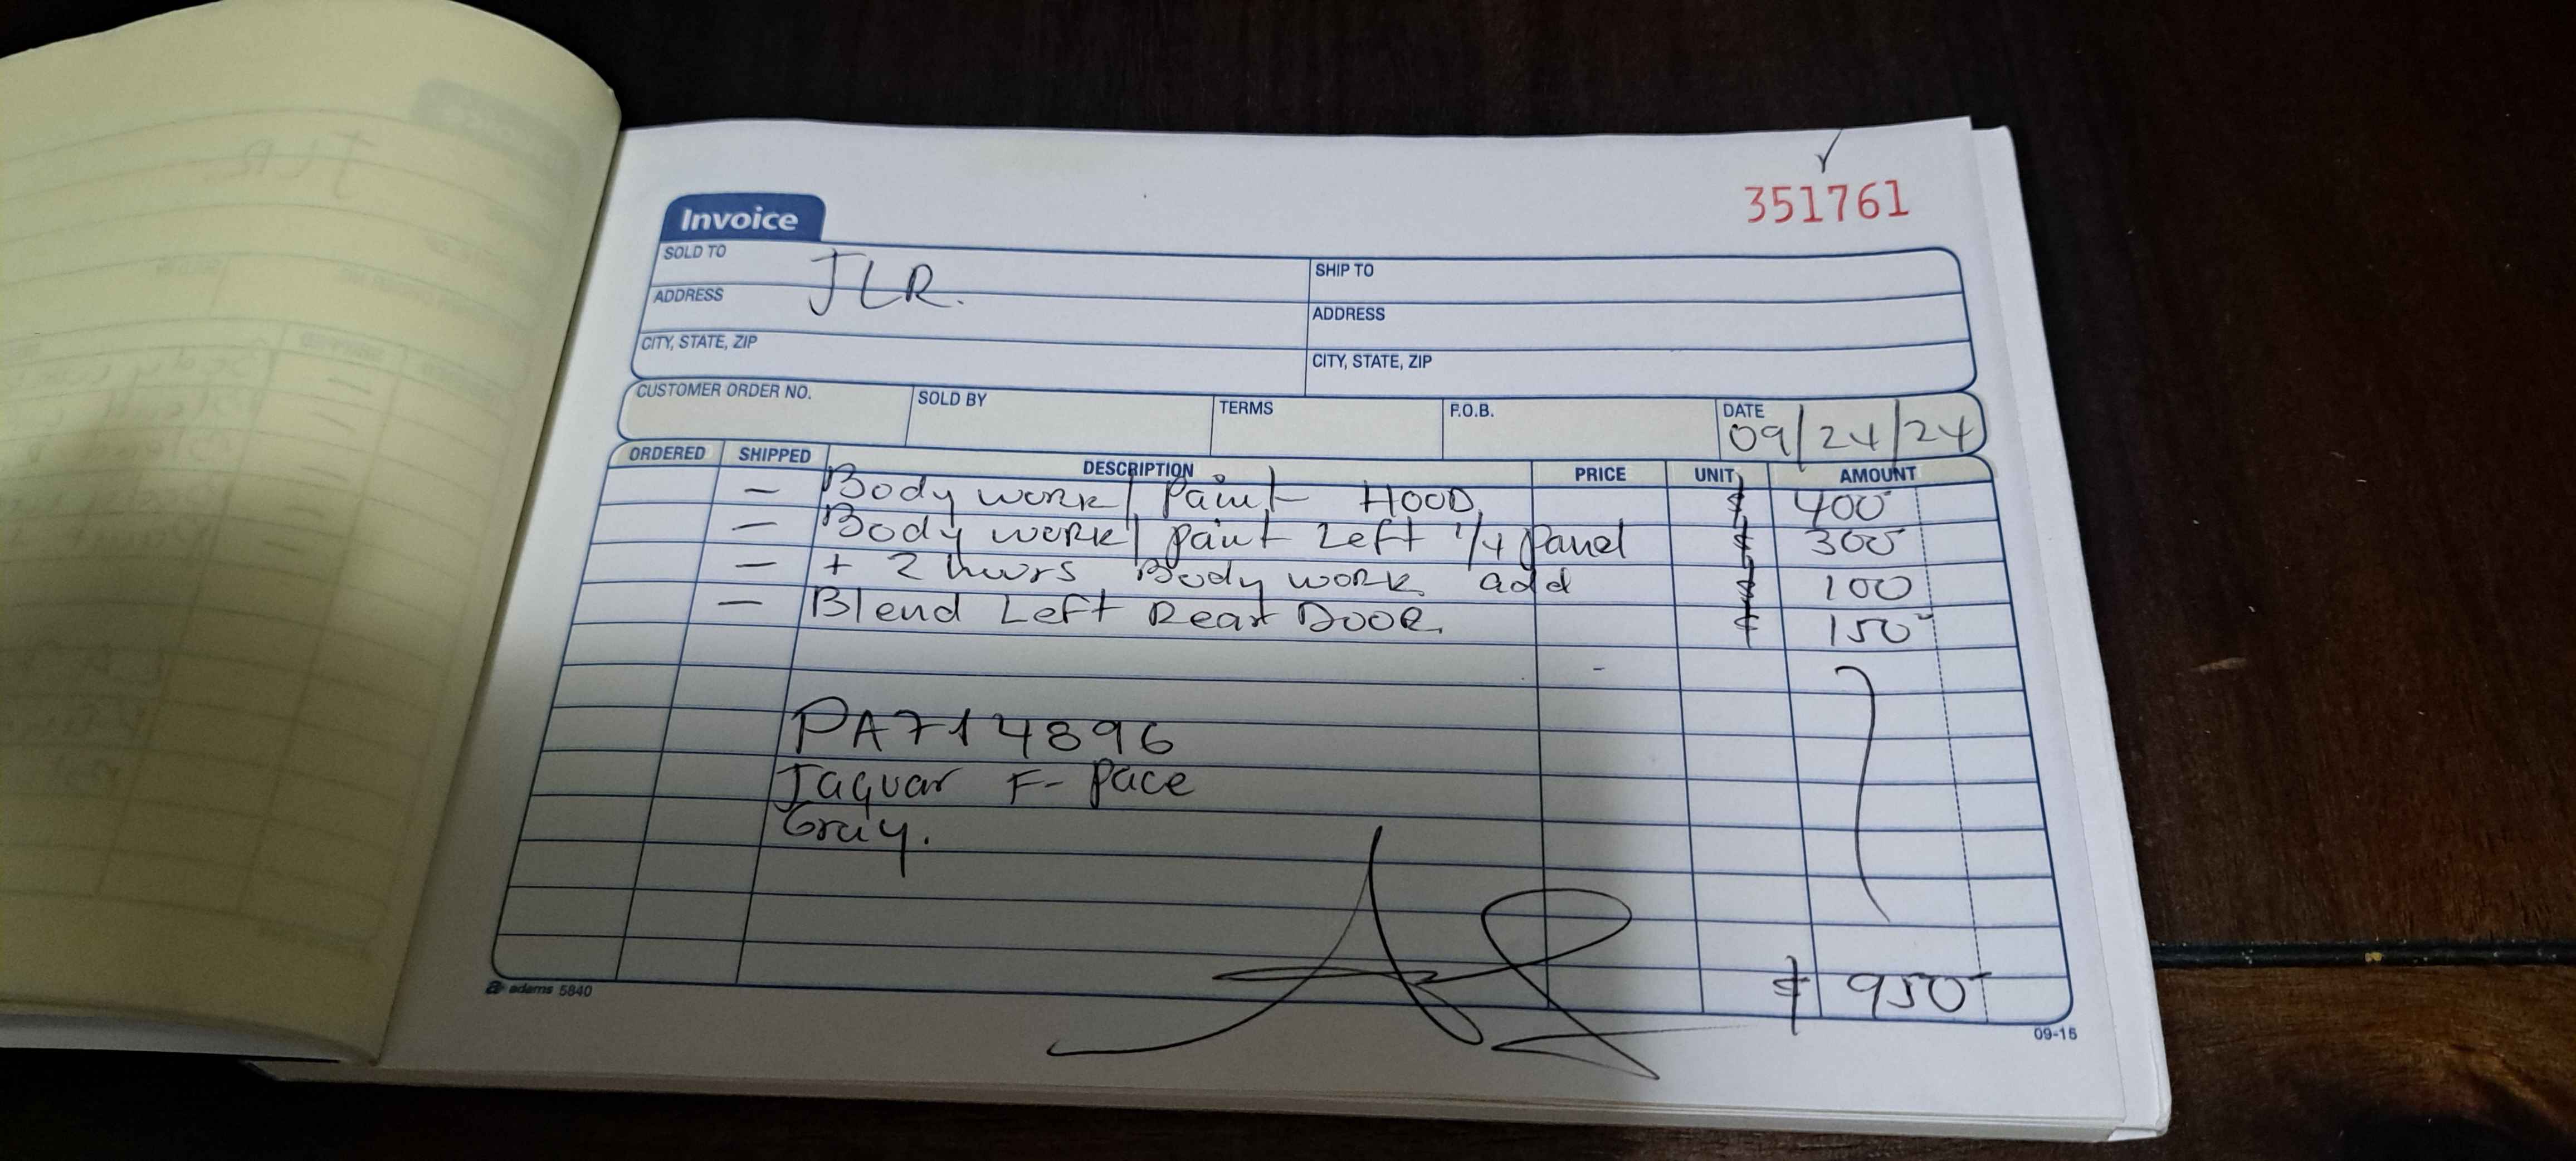 351761
Invoice
SOLD TO JLR.
SHIP TO
ADDRESS
ADDRESS
CITY, STATE, ZIP
CITY, STATE, ZIP
CUSTOMER ORDER NO. SOLD BY TERMS F.O.B. DATE 09/24/24
ORDERED SHIPPED DESCRIPTION PRICE UNIT AMOUNT
— Body work/Paint HOOD $ 400
— Body work/paint Left 1/4 Panel $ 300
— + 2 hours Body work add $ 100
— Blend Left Rear DOOR. $ 150
PA714896
Jaguar F-Pace
Gray.
$ 950
adams 5840
09-16